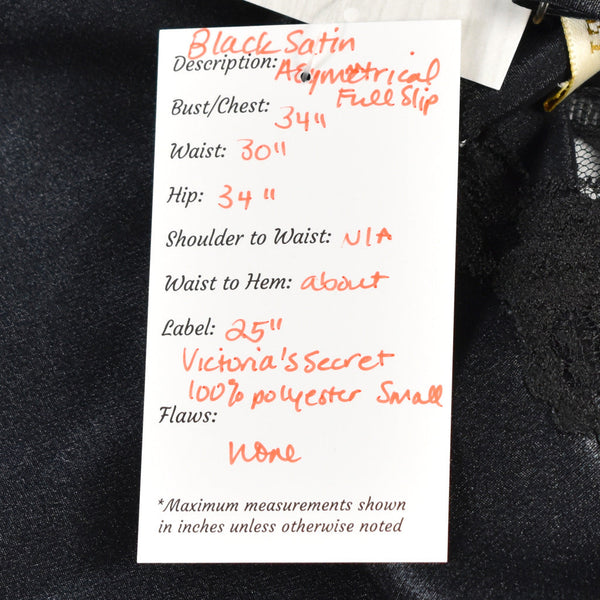 Black Satin
Description: Asymetrical
Full Slip
Bust/Chest: 34"
Waist: 30"
Hip: 34"
Shoulder to Waist: N/A
Waist to Hem: about
Label: 25"
Victoria's Secret
100% polyester Small
Flaws:
None
*Maximum measurements shown
in inches unless otherwise noted